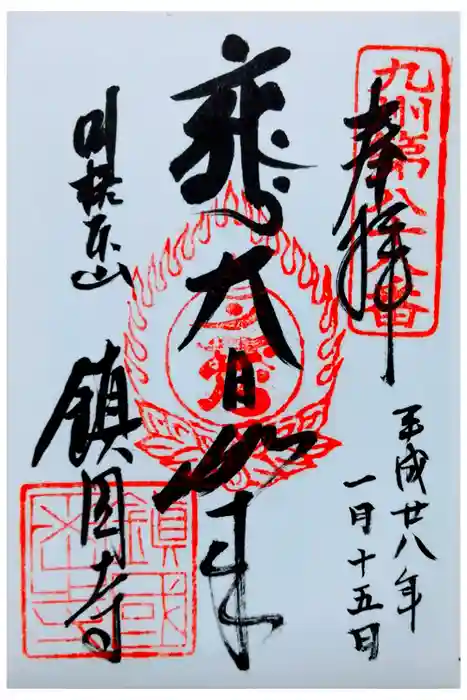 九州第八十八番
奉拝
平成廿八年
一月十五日
大日如来
別格本山
鎮国寺
鎮國